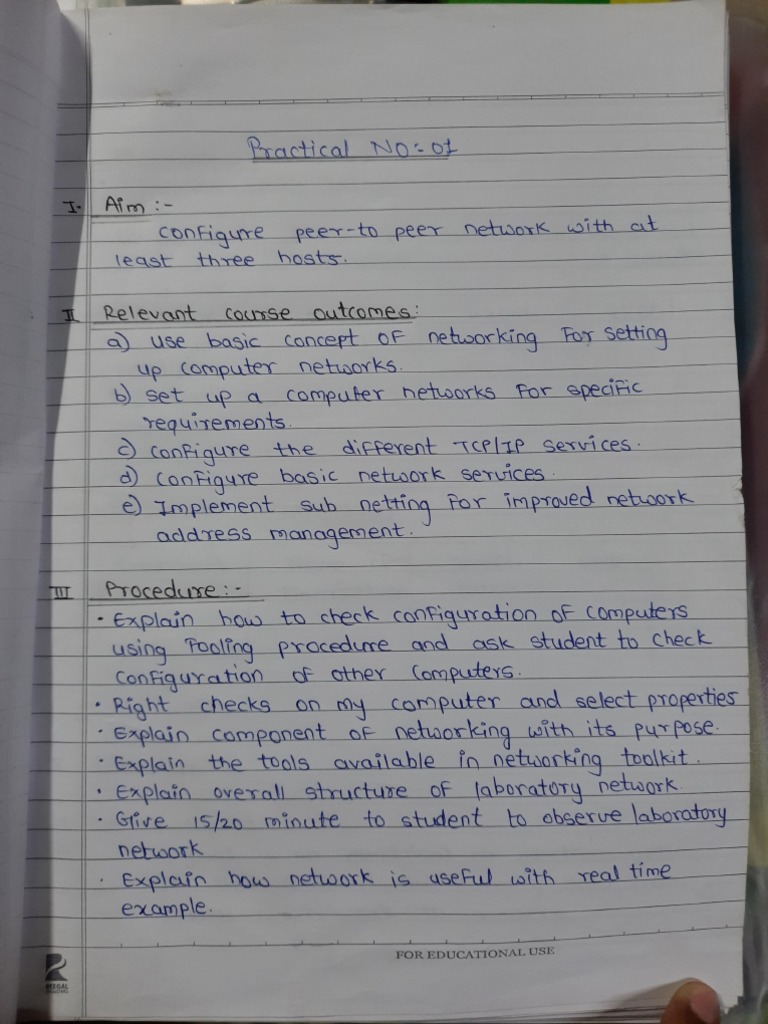 Practical NO:- 01
I. Aim :-
configure peer-to peer network with at
least three hosts.
II Relevant course outcomes:
a) use basic concept of networking for setting
up computer networks.
b) set up a computer networks for specific
requirements.
c) configure the different TCP/IP services.
d) configure basic network services.
e) Implement sub netting for improved network
address management.
III Procedure:-
• Explain how to check configuration of computers
using Fooling procedure and ask student to check
configuration of other computers.
• Right checks on my computer and select properties
• Explain component of networking with its purpose.
• Explain the tools available in networking toolkit.
• Explain overall structure of laboratory network.
• Give 15/20 minute to student to observe laboratory
network
• Explain how network is useful with real time
example.
FOR EDUCATIONAL USE